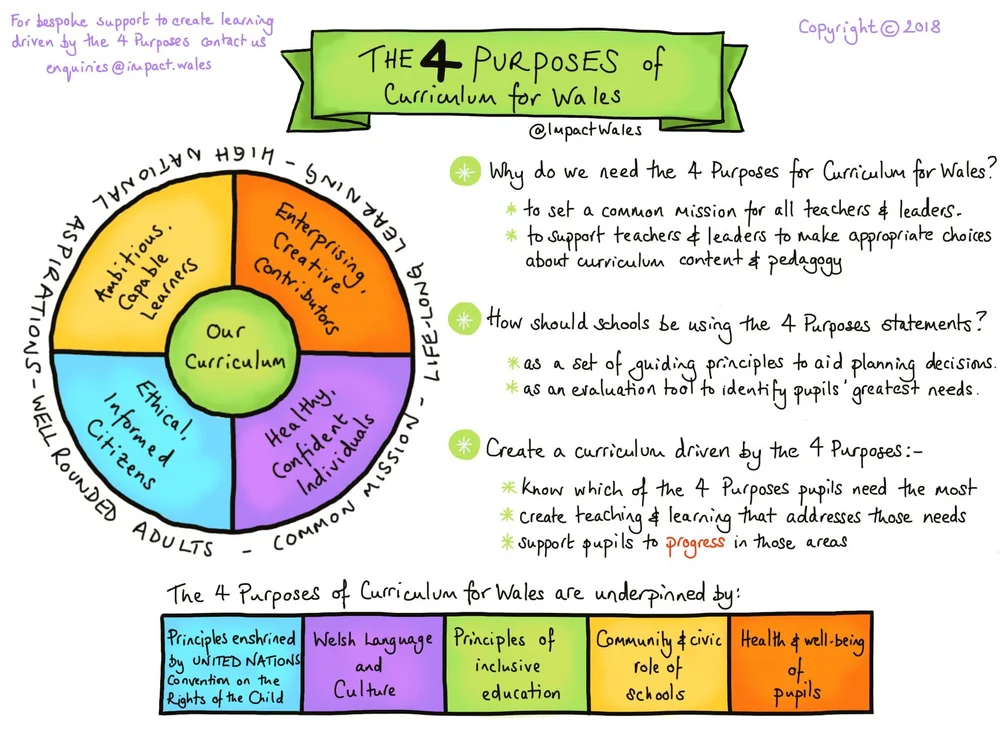 For bespoke support to create learning
driven by the 4 Purposes contact us
enquiries@impact.wales
Copyright © 2018
THE 4 PURPOSES of
Curriculum for Wales
@ImpactWales
HIGH NATIONAL ASPIRATIONS - WELL ROUNDED ADULTS - COMMON MISSION - LIFELONG LEARNING -
Ambitious,
Capable
Learners
Enterprising,
Creative
Contributors
Our
Curriculum
Ethical,
Informed
Citizens
Healthy,
Confident
Individuals
Why do we need the 4 Purposes for Curriculum for Wales?
* to set a common mission for all teachers & leaders.
* to support teachers & leaders to make appropriate choices
about curriculum content & pedagogy
How should schools be using the 4 Purposes statements?
* as a set of guiding principles to aid planning decisions.
* as an evaluation tool to identify pupils' greatest needs.
Create a curriculum driven by the 4 Purposes:-
* know which of the 4 Purposes pupils need the most
* create teaching & learning that addresses those needs
* support pupils to progress in those areas
The 4 Purposes of Curriculum for Wales are underpinned by:
Principles enshrined
by UNITED NATIONS
Convention on the
Rights of the Child
Welsh Language
and
Culture
Principles of
inclusive
education
Community & civic
role of
schools
Health & well-being
of
pupils